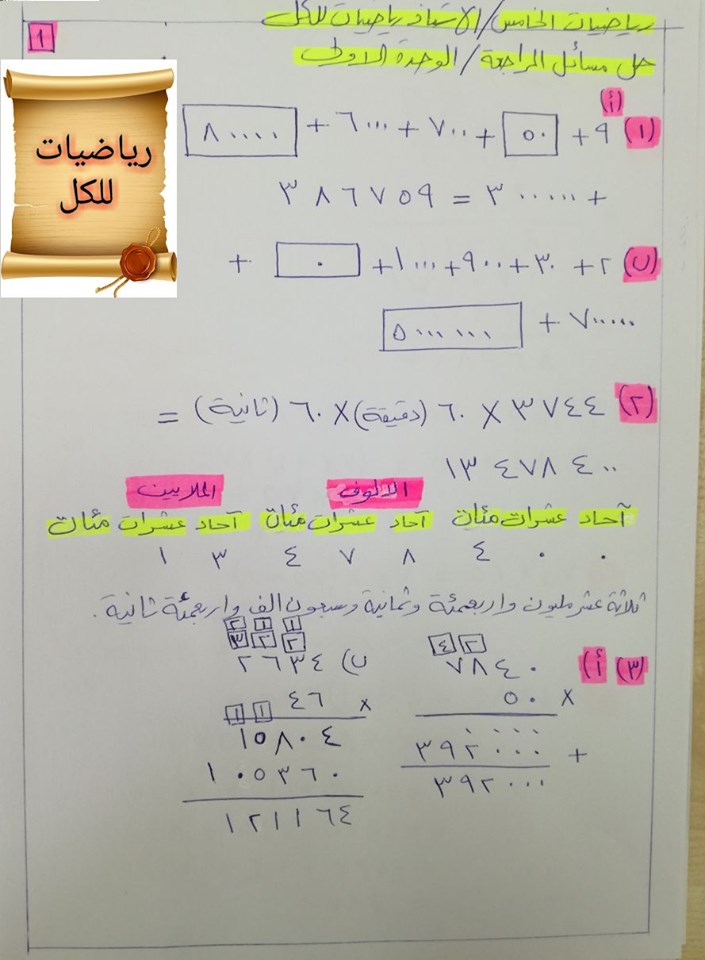 رياضيات الخامس / الاستاذ رياضيات للكل
حل مسائل المراجعة / الوحدة الاولى
١
رياضيات
للكل
(أ)
(١) ٩ + ٥٠ + ٧٠٠ + ٦٠٠٠ + ٨٠٠٠٠
+ ٣٠٠٠٠٠ = ٣٨٦٧٥٩
(ب) ٢ + ٣٠ + ٩٠٠ + ١٠٠٠ + ٠ +
٧٠٠٠٠٠ + ٥٠٠٠٠٠٠
(٢) ٣٧٤٤ × ٦٠ (دقيقة) × ٦٠ (ثانية) =
١٣٤٧٨٤٠٠
الالوف الملايين
آحاد عشرات مئات آحاد عشرات مئات آحاد عشرات مئات
٠ ٠ ٤ ٨ ٧ ٤ ٣ ١
ثلاثة عشر مليون واربعمئة وثمانية وسبعون الف واربعمئة ثانية.
(٣) أ)
٤ ٢
٧٨٤٠
٥٠ ×
٠٠٠٠
٣٩٢٠٠٠ +
٣٩٢٠٠٠
ب)
٢ ١ ١
٣ ٢ ٢
٢٦٣٤
٤٦ ×
١ ١
١٥٨٠٤
١٠٥٣٦٠
١٢١١٦٤